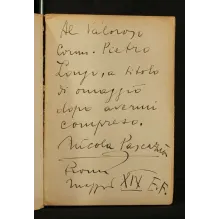 Al Valoroso
Comm. Pietro
Longo, a titolo
di omaggio
dopo avermi
compreso.
Nicola Pascazio
Roma
XIX E.F.